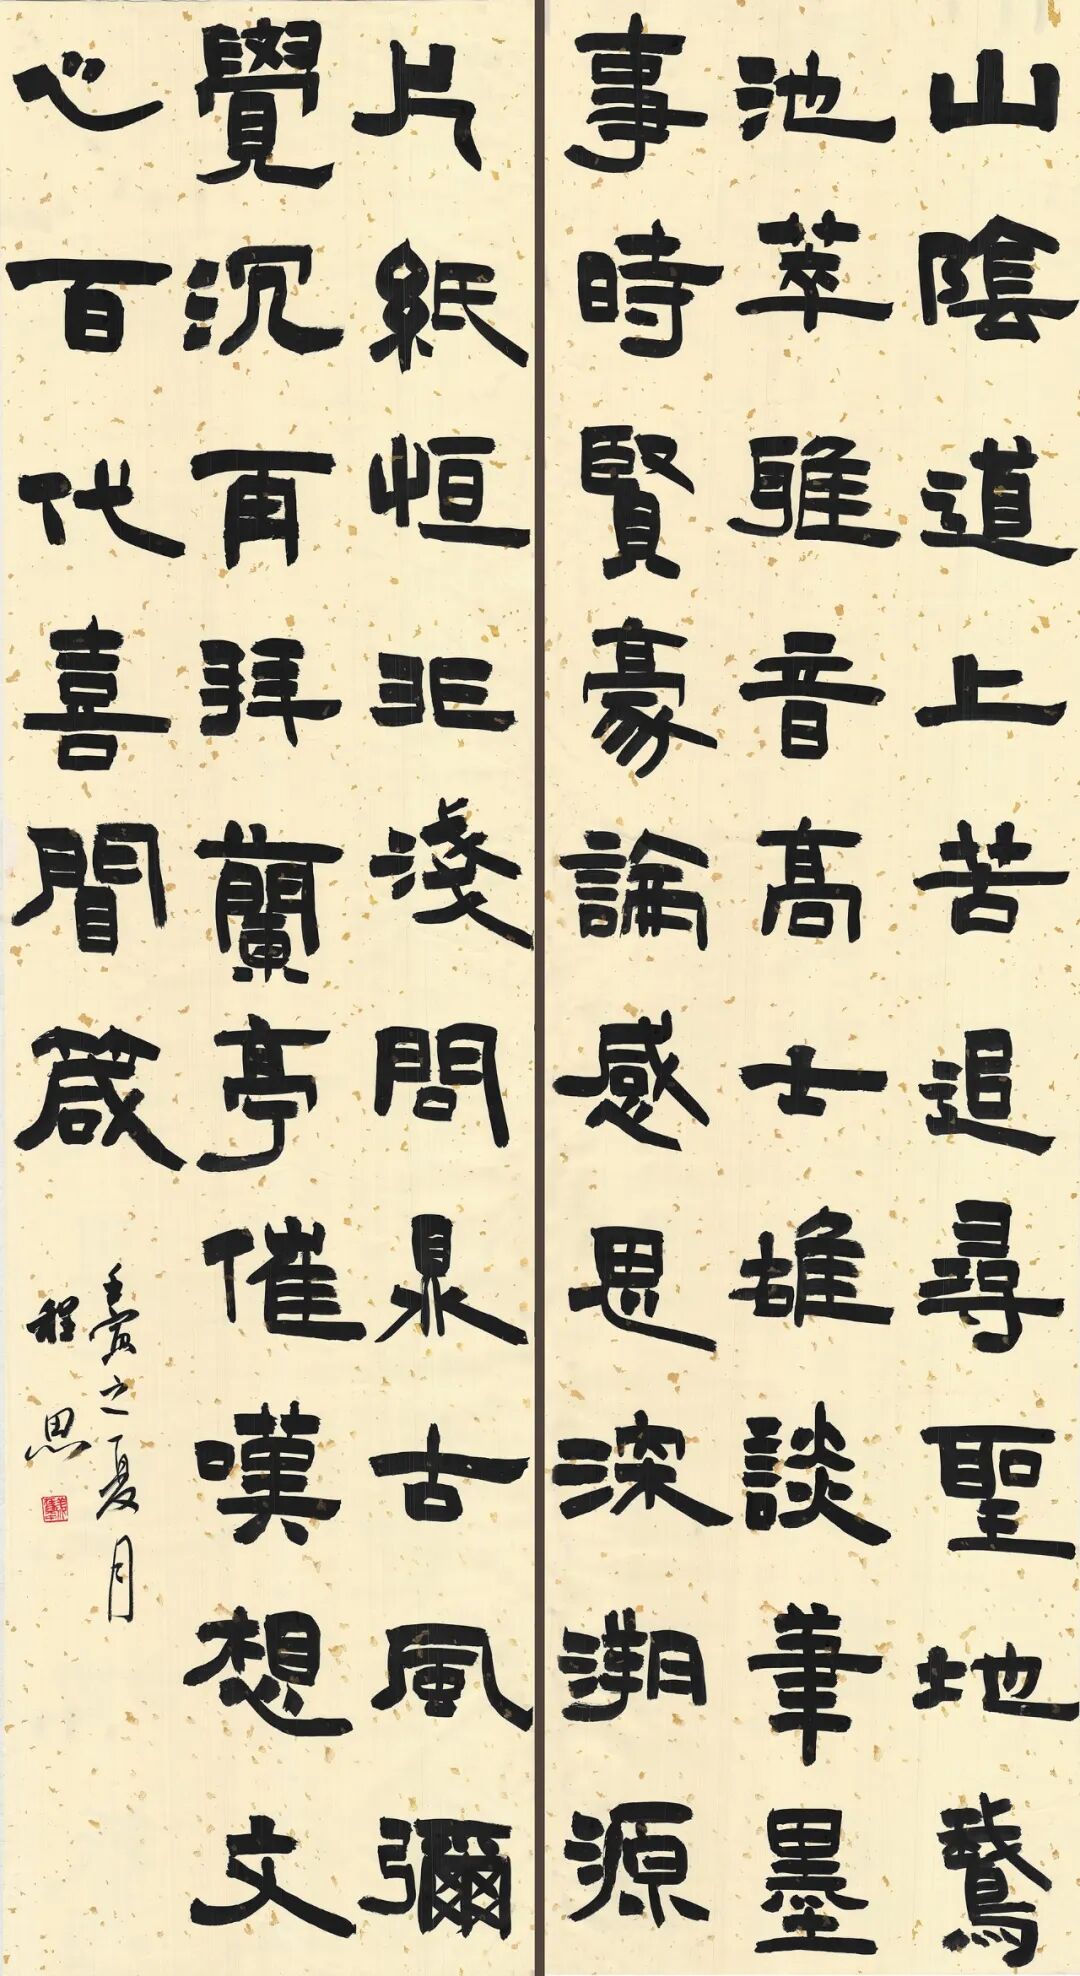 山陰道上苦追尋聖地鵞
池萃雅音高士雄談筆墨
事時賢豪論感思深溯源
片紙恒非淺問泉古風彌
覺沉再拜蘭亭催嘆想文
心百代喜聞箴
壬寅之夏月
程思